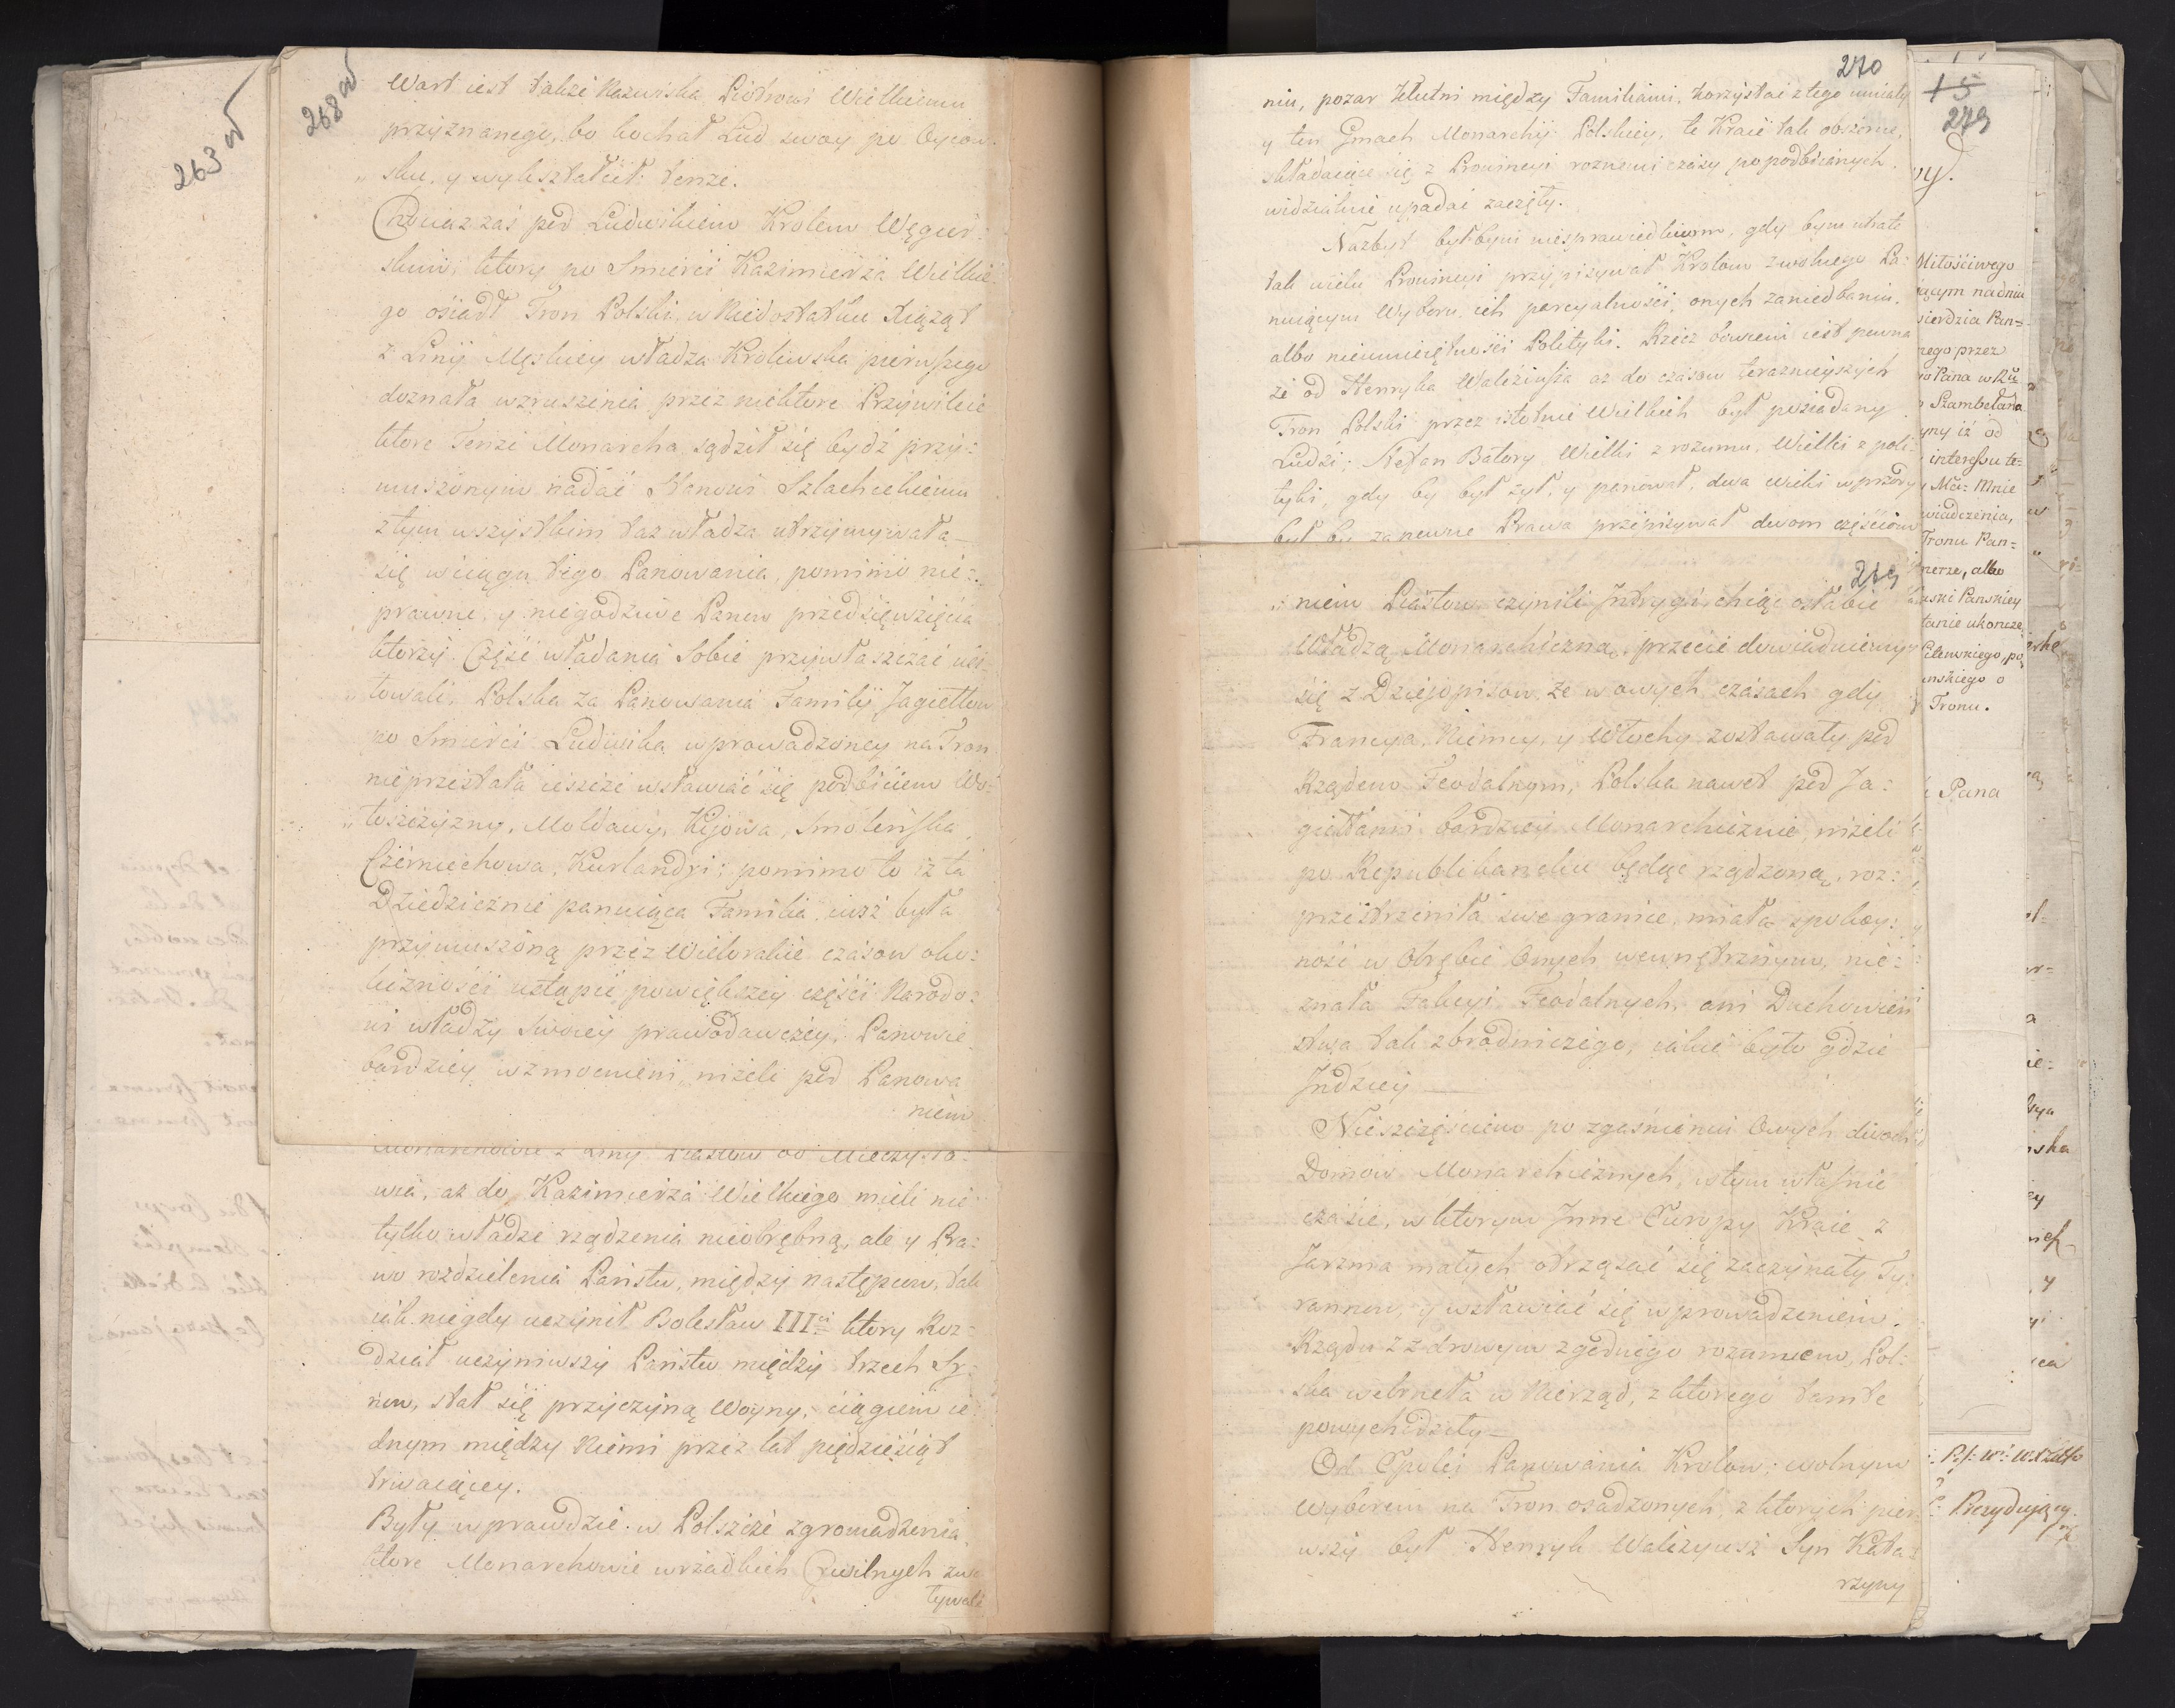 263 v
268 v
Wart iest także Nazwiska Piotrowi Wielkiemu
przyznanego, bo kochał Lud swoy po Oycow-
sku, y wykształcił tenże.
Chociaz zaś pod Ludwikiem Krolem Węgier=
skim, ktory po Smierci Kazimierza Wielkie-
go osiadł Tron Polski, w Niedostatku Xiążąt
z Linij Męskiey władza Krolewska pierwszego
doznała wzruszenia przez niektore Przywileie
ktore Tenze Monarcha sądził się bydź przy=
muszonym nadać Stanowi Szlacheckiemu
z tym wszystkim taz władza utrzymywała
się w ciągu tego Panowania, pomimo nie=
prawne, y niegodziwe Panow przedsięwzięcia
ktorzy Część władania Sobie przywłaszczać usi-
łowali. Polska za Panowania Familij Jagiełłow
po Smierci Ludwika wprowadzoney na Tron
nieprzestała ieszcze wsławiać się podbiciem Wo=
łoszczyzny, Mołdawy, Kijowa, Smoleńska,
Czerniechowa, Kurlandyi; pomimo to iż ta
Dziedzicznie panuiąca Familia iusz była
przymuszoną przez Wielorakie czasow oko=
liczności ustąpić powiększey części Narodo=
wi władzy Swoiey prawodawczey. Panowie
bardziey wzmocnieni, nizeli pod Panowa
niem
Monarchowie z Liny Piastow od Mieczysła=
wa, az do Kazimierza Wielkiego mieli nie
tylko władze rządzenia nieobrębną, ale y Pra=
wo rozdzielenia Państw, między następcow, tak
iak niegdy uczynił Bolesław III ktory Roz=
dział uczyniwszy Państw między trzech Sy=
now, stał się przyczyną Woyny, ciągiem ie
dnym między Niemi przez lat pięćdziesiąt
trwaiącey.
Były wprawdzie w Polszcze zgromadzenia,
ktore Monarchowie w rzadkich Chwilnych zwo
ływali
270
niu, pozar Kłutni między Familiami, korzystać z tego umiały
y ten Gmach Monarchij Polskiey, te Kraie tak obszerne,
składaiące się z Prowincyi roznemi czasy popodbiianych
widzialnie upadać zaczęły.
Nazbyt byłbym niesprawiedliwym, gdy bym utratę
tak wielu Prowincyi przypisywał Krolom z wolnego Pa=
nuiącym Wyboru, ich parcyalności, onych zaniedbaniu,
albo nieumieiętności Polityki. Rzecz bowiem iest pewna
że od Henryka Walezinsza az do czasow teraznieyszych
Tron Polski przez istotnie Wielkich był posiadany
Ludzi; Stefan Batory Wielki z rozumu, Wielki z poli
tyki, gdy by był żył, y panował, dwa wieki w przody
był by zapewne Prawa przepisywał dwom częściom
269
niem Piastow czynili Intrygi, chcąc osłabić
Władzą Monarchiczną, przecie dowiaduiemy
się z Dziejopisow, że w owych czasach gdy
Francya, Niemcy, y Włochy zostawały pod
Rządem Feodalnym, Polska nawet pod Ja=
giełłami bardziey Monarchicznie, niżeli
po Republikansku będąc rządzoną, roz=
przestrzeniła swe granice, miała spokoy=
ność w Obrębie Onych wewnętrznym, nie=
znała Fakcyi Feodalnych, ani Duchowień
stwa tak zbrodniczego, iakie było gdzie
Indziey
Nieszczęściem po zgaśnieniu Owych dwoch
Domow Monarchicznych, w tym własnie
czasie, w ktorym Inne Europy Kraie z
Jarzma małych otrząsać się zaczynały Ty=
rannow, y wsławiać się wprowadzeniem
Rządu z zdrowym zgodnego rozumem, Pol=
ska webrneła w Nierząd, z ktorego tamte
powychodziły
Od Epoki Panowania Krolow, wolnym
Wyborem na Tron osadzonych, z ktorych pier
wszy był Henryk Walezyusz Syn Kata=
rzyny
15
279
Miłościwego
ącym nadniu
sierdzia Pan=
nego przez
Pana w Ru
Szambelana
yny iż od
interessu te=
Mci: Mnie
wiadczenia,
Tronu Pan=
merze, albo
aski Panskiey
tanie ukończe
Cilewskiego, po
anskiego o
Tronu.
Pana
Prezyduiący